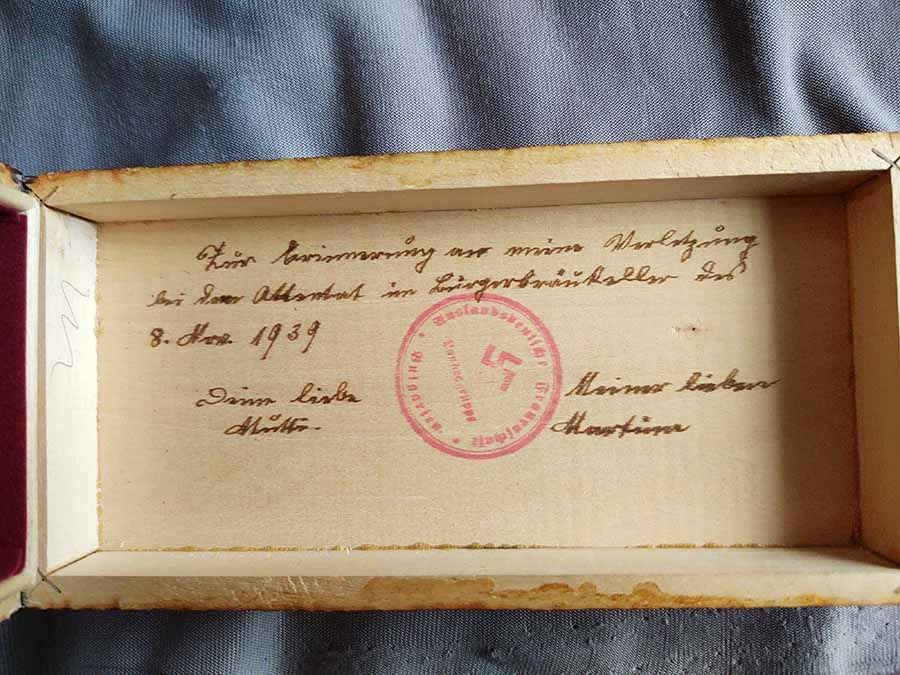 Zur Erinnerung an meine Verletzung
bei dem Attentat im Bürgerbräukeller des
8. Nov. 1939
Deine liebe
Mutti.
Meiner lieben
Martina
Auslandsdeutsche Frauenschaft